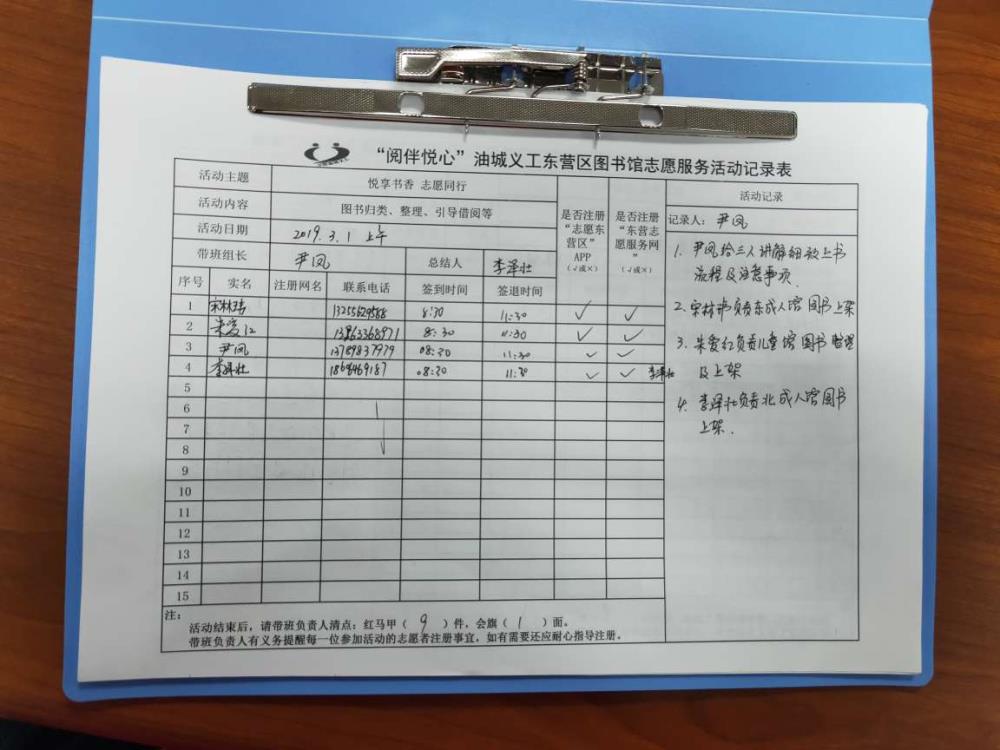 “阅伴悦心”油城义工东营区图书馆志愿服务活动记录表
活动主题 悦享书香 志愿同行
活动内容 图书归类、整理、引导借阅等
活动日期 2019.3.1 上午
带班组长 尹凤 总结人 李泽壮
是否注册“志愿东营区”APP（√或×）
是否注册“东营志愿服务网”（√或×）
序号 实名 注册网名 联系电话 签到时间 签退时间
1 13255629588 8:30 11:30 ✓ ✓
2 朱爱红 13863368971 8:30 11:30 ✓ ✓
3 尹凤 13789837979 08:30 11:30 ✓ ✓
4 李泽壮 08:30 11:30 ✓ ✓ 李泽壮
5
6
7
8
9
10
11
12
13
14
15
活动记录
记录人：尹凤
1. 尹凤给三人讲解细致上书
流程及注意事项.
2. 负责东成人馆图书上架
3. 朱爱红负责儿童馆图书整理
及上架
4. 李泽壮负责北成人馆图书
上架.
注：
活动结束后，请带班负责人清点：红马甲（ 9 ）件，会旗（ 1 ）面。
带班负责人有义务提醒每一位参加活动的志愿者注册事宜，如有需要还应耐心指导注册。